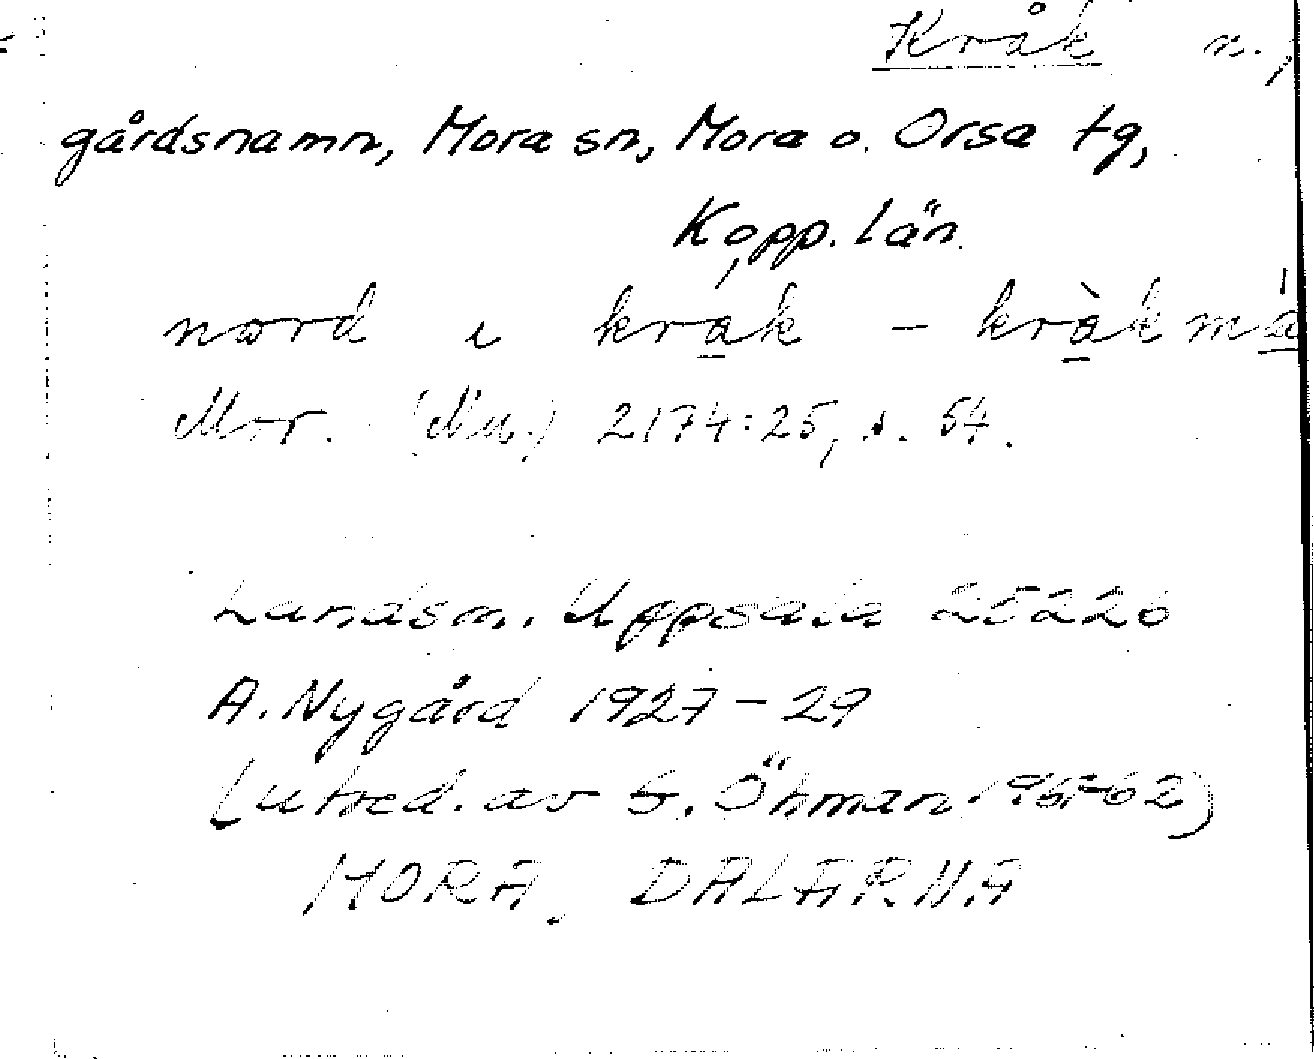 Kråk n.,
gårdsnamn, Mora sn, Mora o. Orsa tg,
Kopp. län.
nord i kra̱k – krà̱k má̱
Mor. (Nu.) 2174:25, s. 54.
Landsm. Uppsala 25226
A. Nygård 1927–29
(utred. av G. Öhman 1961-62)
MORA, DALARNA